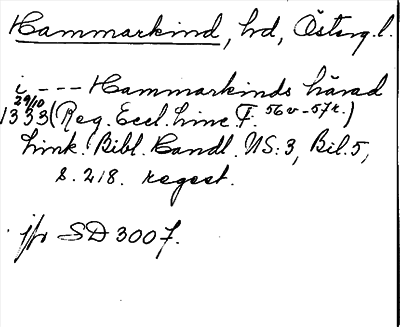 Hammarkind, hd, Österg.l.
i --- Hammarkinds härad
29/10
1333 (Reg. Eccl. Linc. F. 56v-57r.)
Link. Bibl. Handl. NS:3, Bil.5,
s. 218. regest.
jfr SD 3007.